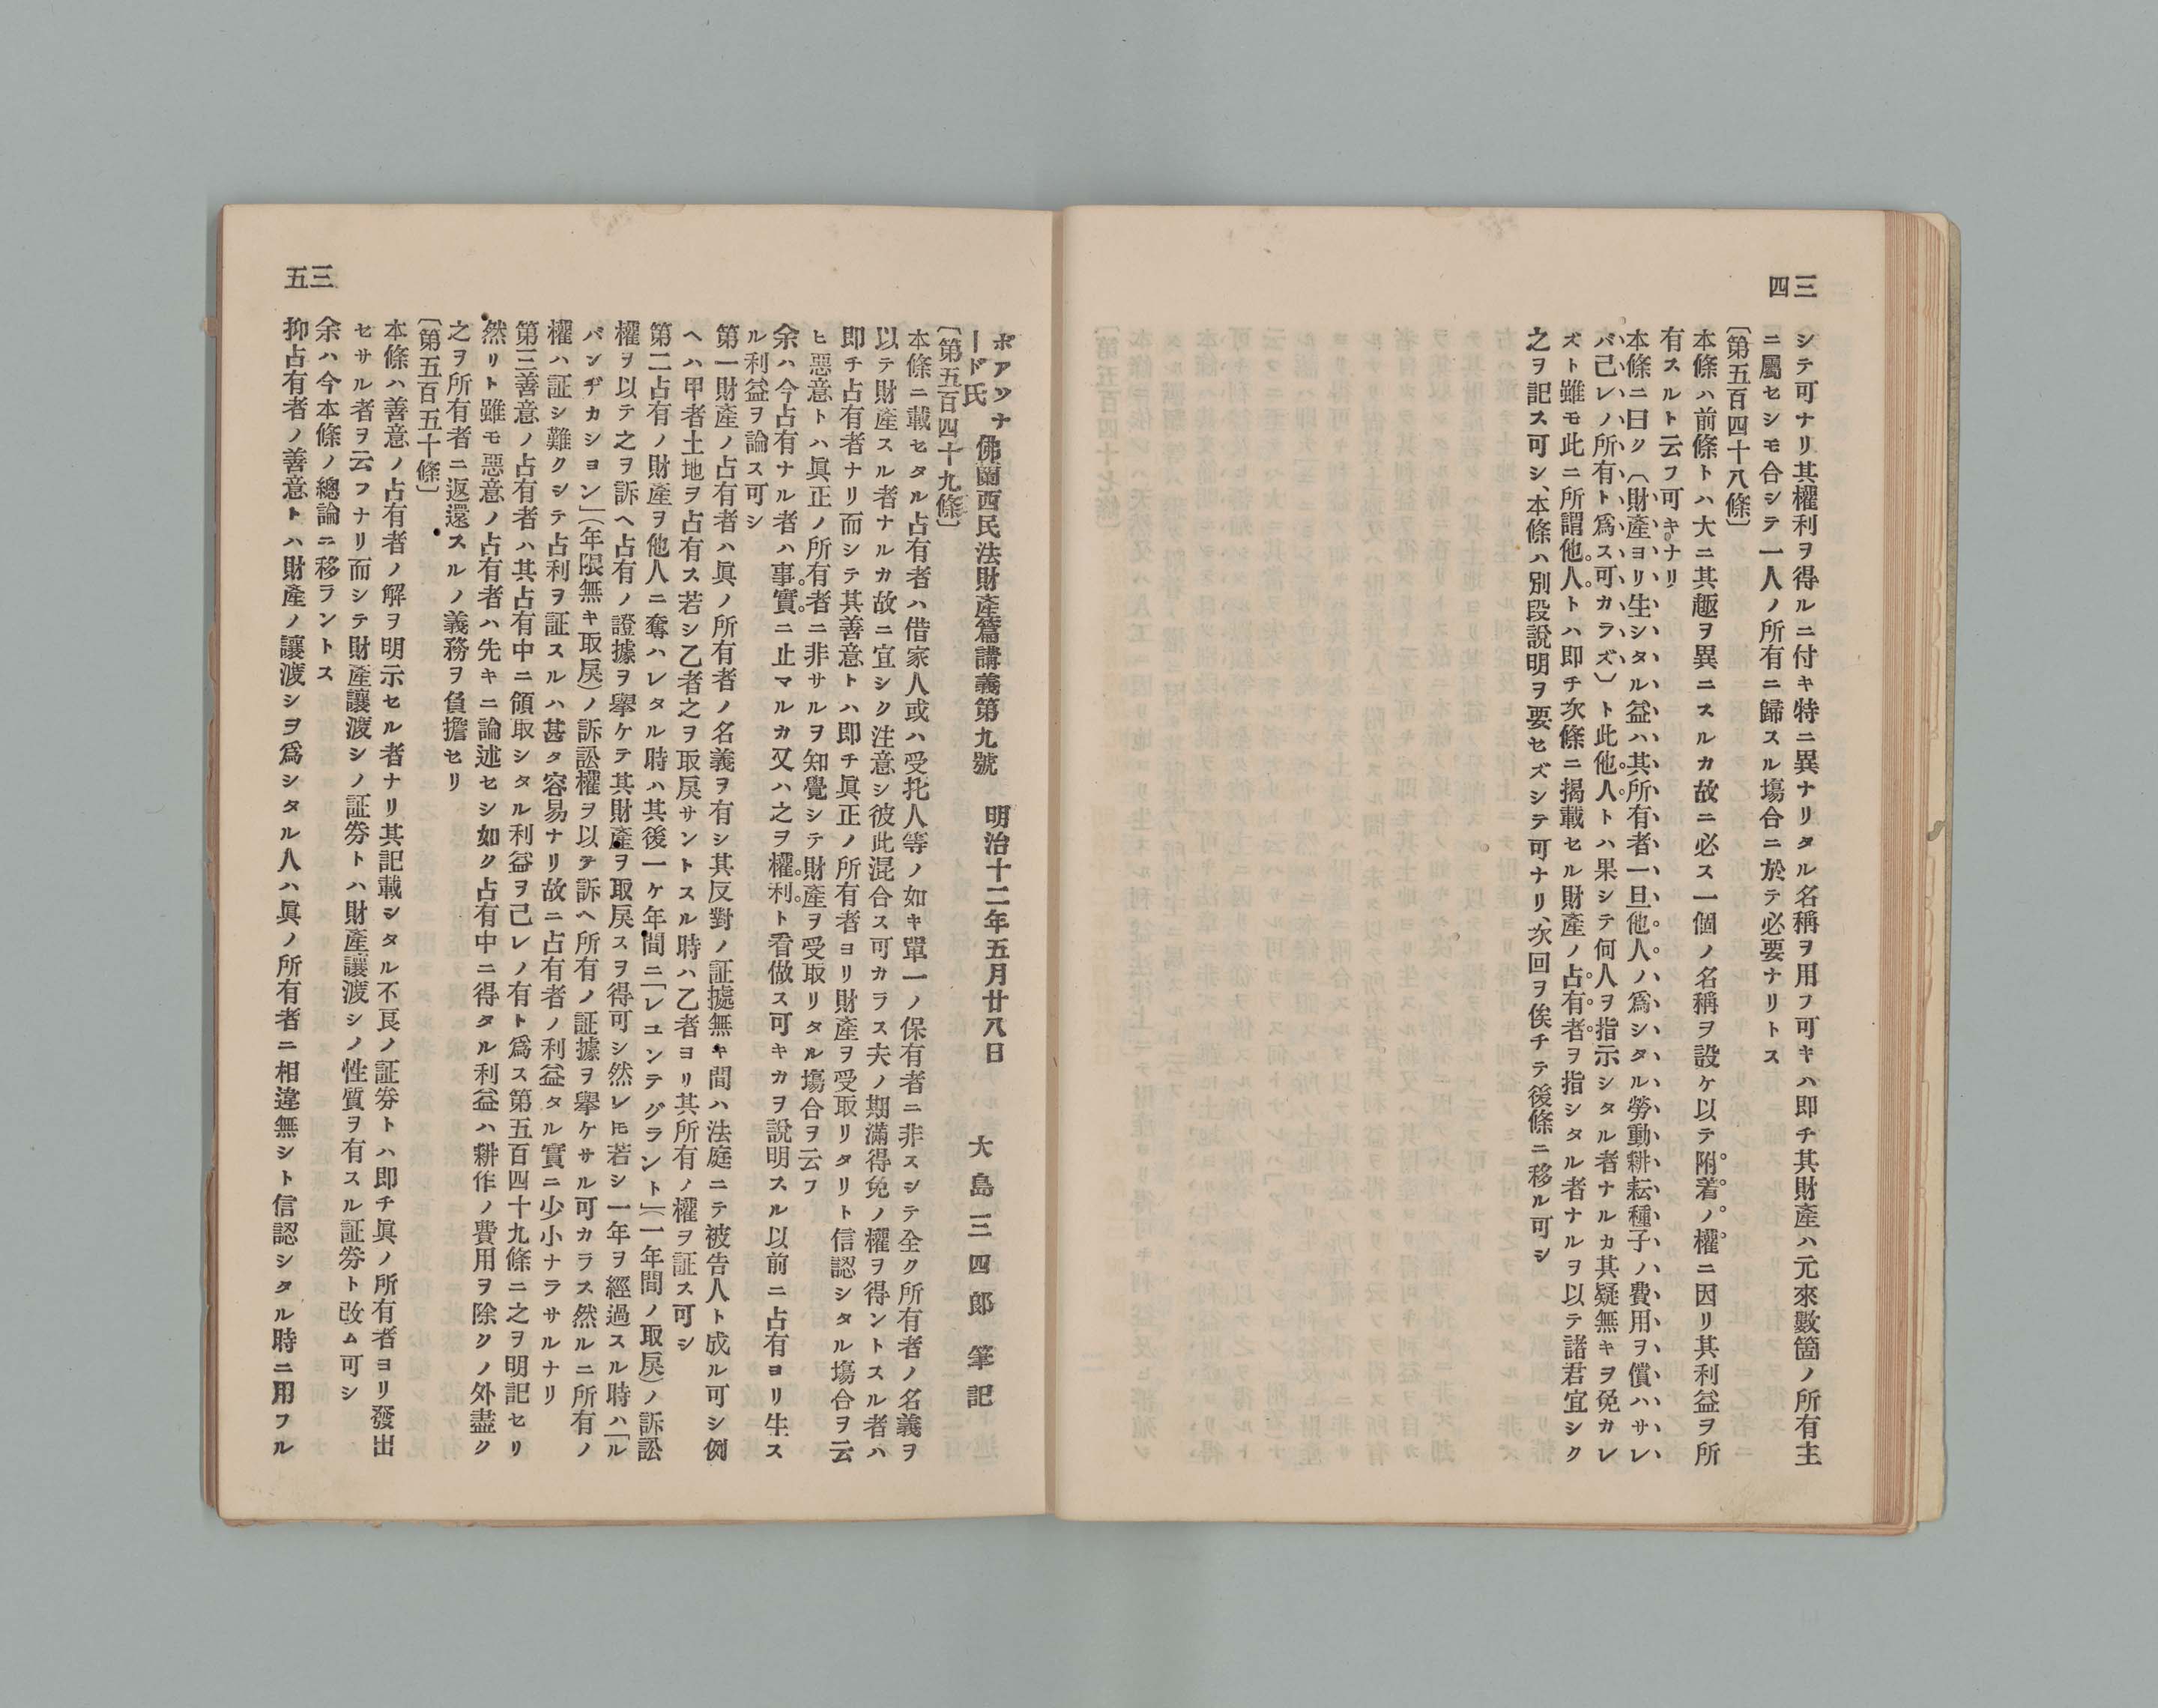 三四
シテ可ナリ其權利ヲ得ルニ付キ特ニ異ナリタル名稱ヲ用フ可キハ即チ其財產ハ元來數箇ノ所有主
ニ屬セシモ合シテ一人ノ所有ニ歸スル塲合ニ於テ必要ナリトス
〔第五百四十八條〕
本條ハ前條トハ大ニ其趣ヲ異ニスルカ故ニ必ス一個ノ名稱ヲ設ケ以テ附着ノ權ニ因リ其利益ヲ所
有スルト云フ可キナリ
本條ニ曰ク〔財產ヨリ生シタル益ハ其所有者一旦他人ノ爲シタル勞動耕耘種子ノ費用ヲ償ハサレ
バ己レノ所有ト爲ス可カラズ〕ト此他人トハ果シテ何人ヲ指示シタル者ナルカ其疑無キヲ免カレ
ズト雖モ此ニ所謂他人トハ即チ次條ニ揭載セル財產ノ占有者ヲ指シタル者ナルヲ以テ諸君宜シク
之ヲ記ス可シ、本條ハ別段說明ヲ要セズシテ可ナリ、次回ヲ俟チテ後條ニ移ル可シ
三五
ボアソナード氏佛蘭西民法財產篇講義第九號　明治十二年五月廿八日　大島三四郎筆記
〔第五百四十九條〕
本條ニ載セタル占有者ハ借家人或ハ受托人等ノ如キ單一ノ保有者ニ非スシテ全ク所有者ノ名義ヲ
以テ財產スル者ナルカ故ニ宜シク注意シ彼此混合ス可カラス夫ノ期滿得免ノ權ヲ得ントスル者ハ
即チ占有者ナリ而シテ其善意トハ即チ眞正ノ所有者ヨリ財產ヲ受取リタリト信認シタル塲合ヲ云
ヒ惡意トハ眞正ノ所有者ニ非サルヲ知覺シテ財產ヲ受取リタル塲合ヲ云フ
余ハ今占有ナル者ハ事實ニ止マルカ又ハ之ヲ權利ト看做ス可キカヲ說明スル以前ニ占有ヨリ生ス
ル利益ヲ論ス可シ
第一財產ノ占有者ハ眞ノ所有者ノ名義ヲ有シ其反對ノ証據無キ間ハ法庭ニテ被告人ト成ル可シ例
ヘハ甲者土地ヲ占有ス若シ乙者之ヲ取戾サントスル時ハ乙者ヨリ其所有ノ權ヲ証ス可シ
第二占有ノ財產ヲ他人ニ奪ハレタル時ハ其後一ケ年間ニ「レユンテグラント」（一年間ノ取戾）ノ訴訟
權ヲ以テ之ヲ訴ヘ占有ノ證據ヲ擧ケテ其財產ヲ取戾スヲ得可シ然レ𪜈若シ一年ヲ經過スル時ハ「ル
バンヂカション」（年限無キ取戾）ノ訴訟權ヲ以テ訴ヘ所有ノ証據ヲ擧ケサル可カラス然ルニ所有ノ
權ハ証シ難クシテ占利ヲ証スルハ甚タ容易ナリ故ニ占有者ノ利益タル實ニ少小ナラサルナリ
第三善意ノ占有者ハ其占有中ニ領取シタル利益ヲ己レノ有ト爲ス第五百四十九條ニ之ヲ明記セリ
然リト雖モ惡意ノ占有者ハ先キニ論述セシ如ク占有中ニ得タル利益ハ耕作ノ費用ヲ除クノ外盡ク
之ヲ所有者ニ返還スルノ義務ヲ負擔セリ
〔第五百五十條〕
本條ハ善意ノ占有者ノ解ヲ明示セル者ナリ其記載シタル不良ノ証券トハ即チ眞ノ所有者ヨリ發出
セサル者ヲ云フナリ而シテ財產讓渡シノ証券トハ財產讓渡シノ性質ヲ有スル証券ト改ム可シ
余ハ今本條ノ總論ニ移ラントス
抑占有者ノ善意トハ財產ノ讓渡シヲ爲シタル人ハ眞ノ所有者ニ相違無シト信認シタル時ニ用フル